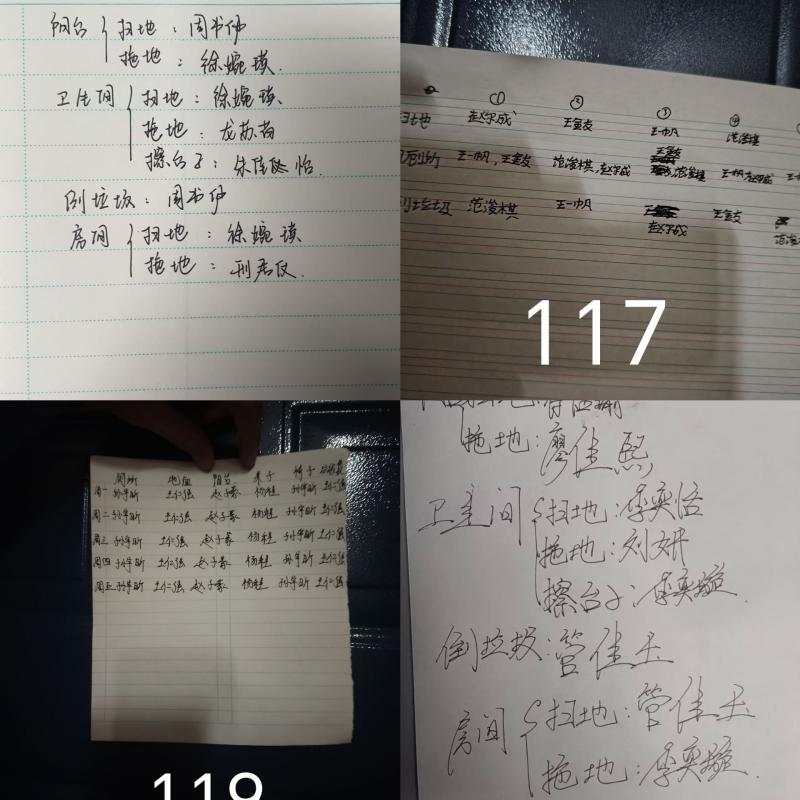 阳台 扫地：周书伊
拖地：徐婉瑛
卫生间 扫地：徐婉瑛
拖地：龙苏苗
擦台子：朱佳怡
倒垃圾：周书伊
房间 扫地：徐婉瑛
拖地：刑君仪
① ② ③ ④
扫地 赵宇成 王金友 王一帆 范浚棋
厕所 王一帆，王金友 范浚棋，赵宇成 王金友，范浚棋 王一帆，赵宇成
倒垃圾 范浚棋 王一帆 赵宇成 王金友
117
厕所 地面 阳台 桌子 椅子
周一 孙宇昕 王仁强 赵子豪 杨桂 孙宇昕 王仁强
周二 孙宇昕 王仁强 赵子豪 杨桂 孙宇昕 王仁强
周三 孙宇昕 王仁强 赵子豪 杨桂 孙宇昕 王仁强
周四 孙宇昕 王仁强 赵子豪 杨桂 孙宇昕 王仁强
周五 孙宇昕 王仁强 赵子豪 杨桂 孙宇昕 王仁强
119
拖地：廖佳熙
卫生间 扫地：李奕恬
拖地：刘妍
擦台子：李奕璇
倒垃圾：管佳玉
房间 扫地：管佳玉
拖地：李奕璇